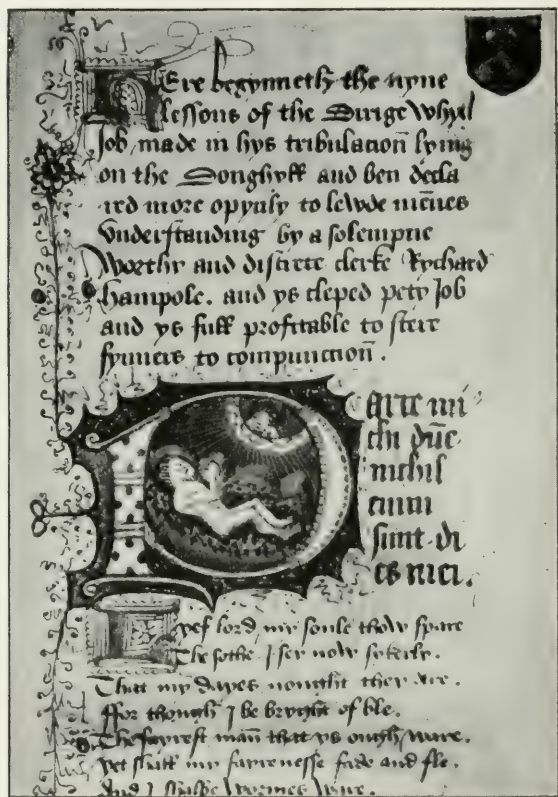 Here begynneth the nyne
lessons of the Dirige Whych
Job made in hys tribulacion̄ lying
on the Donghyll and ben decla
red more opynly to lewde mēnes
Vnderstanding by a solempne
Worthy and discrete clerke Rychard
Hampole. and ys cleped pety Job
and ys full profitable to stere
synners to compunction̄.
PArce mi
chi dn̄e
nichil
enim
sunt di
es mei.
Lyef lord my soule thow spare
The sothe I sey now sykerly.
That my dayes nought they are.
ffor though I be bryght of ble.
The fayrest man̄ that ys ough ware.
Yet shall my fayrenesse fade and fle.
And I shalbe Wormes Ware.